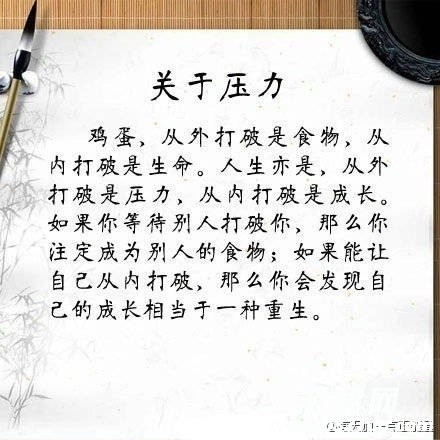 关于压力
鸡蛋，从外打破是食物，从
内打破是生命。人生亦是，从外
打破是压力，从内打破是成长。
如果你等待别人打破你，那么你
注定成为别人的食物；如果能让
自己从内打破，那么你会发现自
己的成长相当于一种重生。